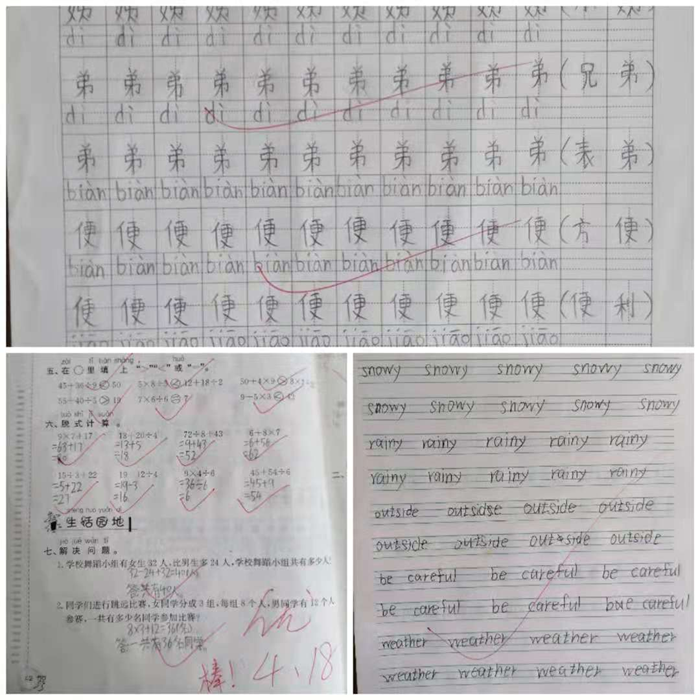 dì dì dì dì dì dì dì dì dì dì dì
弟 弟 弟 弟 弟 弟 弟 弟 弟 弟 弟 (兄 弟)
dì dì dì dì dì dì dì dì dì dì dì
弟 弟 弟 弟 弟 弟 弟 弟 弟 弟 弟 (表 弟)
biàn biàn biàn biàn biàn biàn biàn biàn biàn biàn biàn
便 便 便 便 便 便 便 便 便 便 便 (方 便)
biàn biàn biàn biàn biàn biàn biàn biàn biàn biàn biàn
便 便 便 便 便 便 便 便 便 便 便 (便 利)
五、在○里填上">""<"或"="。
六、脱式计算。
9×7+17 18-20÷4 72÷8+43 6+8×7
=63+17
=9+43
=6+56
=18 =52 =62
45+54÷6
=5+22 =19-3 =36÷6 =45+9
=27 =16 =6 =54
生活园地
七、解决问题。
1.学校舞蹈小组有女生32人,比男生多24人,学校舞蹈小组共有多少人?
2.同学们进行跳远比赛,女同学分成3组,每组8个人,男同学有12个人
参赛,一共有多少名同学参加比赛?
8×3+12=36(名)
答:一共有36名同学。
棒! 4、18
snowy snowy snowy snowy snowy
snowy snowy snowy snowy snowy
rainy rainy rainy rainy rainy
rainy rainy rainy rainy rainy
outside outsidse outside outside
outside outside outside outside
be careful be careful be careful
be careful be careful bae careful
weather weather weather weather
weather weather weather weather